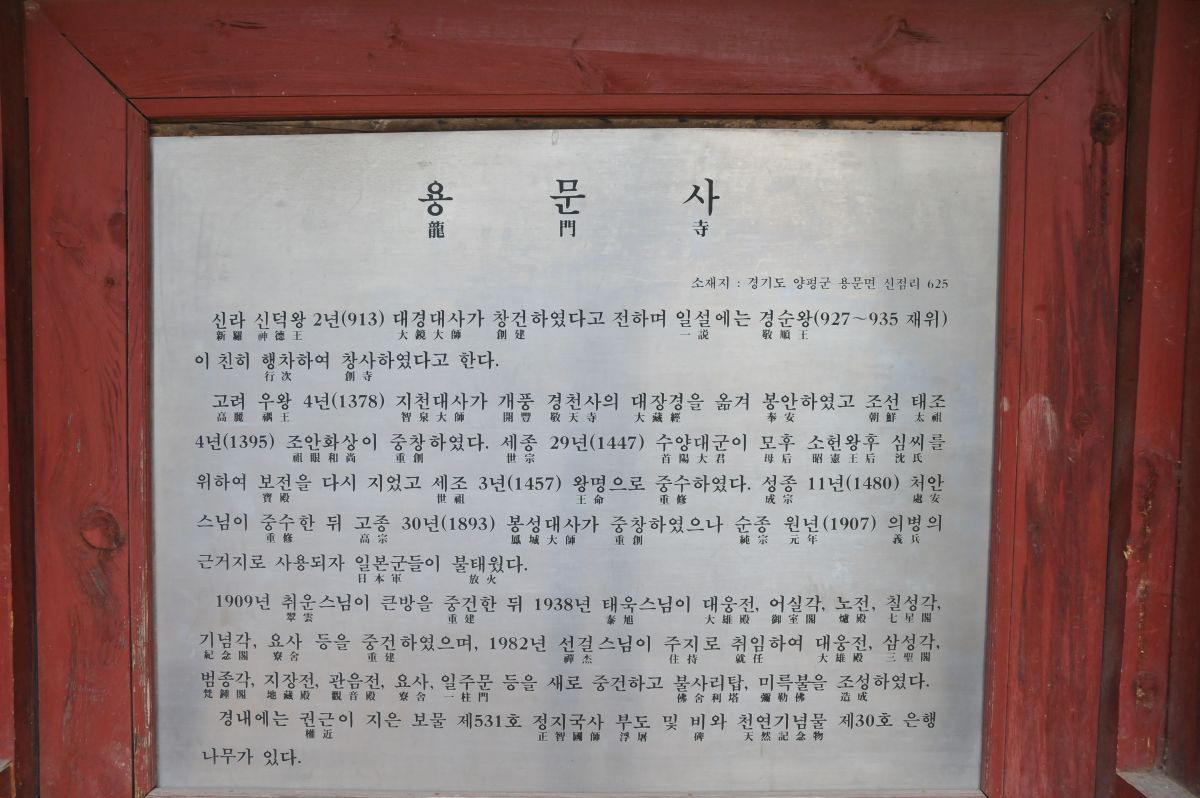 용 문 사
龍 門 寺
소재지 : 경기도 양평군 용문면 신점리 625
신라 신덕왕 2년(913) 대경대사가 창건하였다고 전하며 일설에는 경순왕(927~935 재위)
新羅 神德王 大鏡大師 創建 一說 敬順王
이 친히 행차하여 창사하였다고 한다.
行次 創寺
고려 우왕 4년(1378) 지천대사가 개풍 경천사의 대장경을 옮겨 봉안하였고 조선 태조
高麗 禑王 智泉大師 開豐 敬天寺 大藏經 奉安 朝鮮 太祖
4년(1395) 조안화상이 중창하였다. 세종 29년(1447) 수양대군이 모후 소헌왕후 심씨를
祖眼和尙 重創 世宗 首陽大君 母后 昭憲王后 沈氏
위하여 보전을 다시 지었고 세조 3년(1457) 왕명으로 중수하였다. 성종 11년(1480) 처안
寶殿 世祖 王命 重修 成宗 處安
스님이 중수한 뒤 고종 30년(1893) 봉성대사가 중창하였으나 순종 원년(1907) 의병의
重修 高宗 鳳城大師 重創 純宗 元年 義兵
근거지로 사용되자 일본군들이 불태웠다.
日本軍 放火
1909년 취운스님이 큰방을 중건한 뒤 1938년 태욱스님이 대웅전, 어실각, 노전, 칠성각,
翠雲 重建 泰旭 大雄殿 御室閣 爐殿 七星閣
기념각, 요사 등을 중건하였으며, 1982년 선걸스님이 주지로 취임하여 대웅전, 삼성각,
紀念閣 寮舍 重建 禪杰 住持 就任 大雄殿 三聖閣
범종각, 지장전, 관음전, 요사, 일주문 등을 새로 중건하고 불사리탑, 미륵불을 조성하였다.
梵鍾閣 地藏殿 觀音殿 寮舍 一柱門 佛舍利塔 彌勒佛 造成
경내에는 권근이 지은 보물 제531호 정지국사 부도 및 비와 천연기념물 제30호 은행
權近 正智國師 浮屠 碑 天然記念物
나무가 있다.